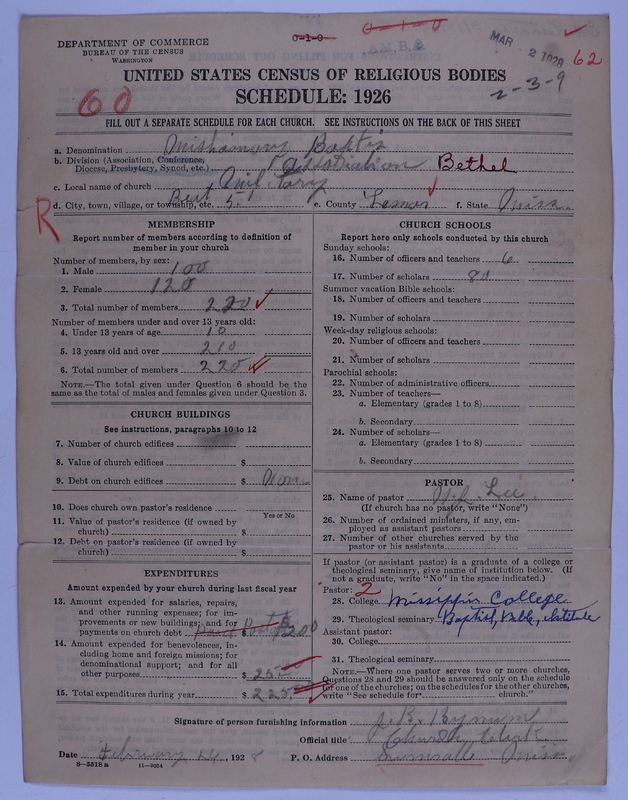 DEPARTMENT OF COMMERCE
BUREAU OF THE CENSUS
WASHINGTON
0-1-0
0-1-0
MAR - 2 1928
62
2-3-9
60
UNITED STATES CENSUS OF RELIGIOUS BODIES
SCHEDULE: 1926
FILL OUT A SEPARATE SCHEDULE FOR EACH CHURCH. SEE INSTRUCTIONS ON THE BACK OF THIS SHEET
a. Denomination
b. Division (Association, Conference, Diocese, Presbytery, Synod, etc.) Association Bethel
c. Local name of church
d. City, town, village, or township, etc. Beat 5
e. County
f. State Miss
R
MEMBERSHIP
Report number of members according to definition of member in your church
Number of members, by sex:
1. Male 100
2. Female 120
3. Total number of members 220
Number of members under and over 13 years old:
4. Under 13 years of age 10
5. 13 years old and over 210
6. Total number of members 220
NOTE.—The total given under Question 6 should be the same as the total of males and females given under Question 3.
CHURCH BUILDINGS
See instructions, paragraphs 10 to 12
7. Number of church edifices
8. Value of church edifices $
9. Debt on church edifices $
10. Does church own pastor's residence
Yes or No
11. Value of pastor's residence (if owned by church) $
12. Debt on pastor's residence (if owned by church) $
EXPENDITURES
Amount expended by your church during last fiscal year
13. Amount expended for salaries, repairs, and other running expenses; for improvements or new buildings; and for payments on church debt $200
14. Amount expended for benevolences, including home and foreign missions; for denominational support; and for all other purposes $ 25
15. Total expenditures during year $ 225
CHURCH SCHOOLS
Report here only schools conducted by this church
Sunday schools:
16. Number of officers and teachers 6
17. Number of scholars 80
Summer vacation Bible schools:
18. Number of officers and teachers
19. Number of scholars
Week-day religious schools:
20. Number of officers and teachers
21. Number of scholars
Parochial schools:
22. Number of administrative officers
23. Number of teachers—
a. Elementary (grades 1 to 8)
b. Secondary
24. Number of scholars—
a. Elementary (grades 1 to 8)
b. Secondary
PASTOR
25. Name of pastor Lee
(If church has no pastor, write "None")
26. Number of ordained ministers, if any, employed as assistant pastors
27. Number of other churches served by the pastor or his assistants
If pastor (or assistant pastor) is a graduate of a college or theological seminary, give name of institution below. (If not a graduate, write "No" in the space indicated.)
Pastor: 2
28. College Missippin College
29. Theological seminary Baptist, Bible, institute
Assistant pastor:
30. College
31. Theological seminary
NOTE.—Where one pastor serves two or more churches, Questions 28 and 29 should be answered only on the schedule for one of the churches; on the schedules for the other churches, write "See schedule for church."
Signature of person furnishing information J. B. Bynum
Official title Church Clerk
Date February 24, 1928
P. O. Address Miss
8—5518 a 11—9054